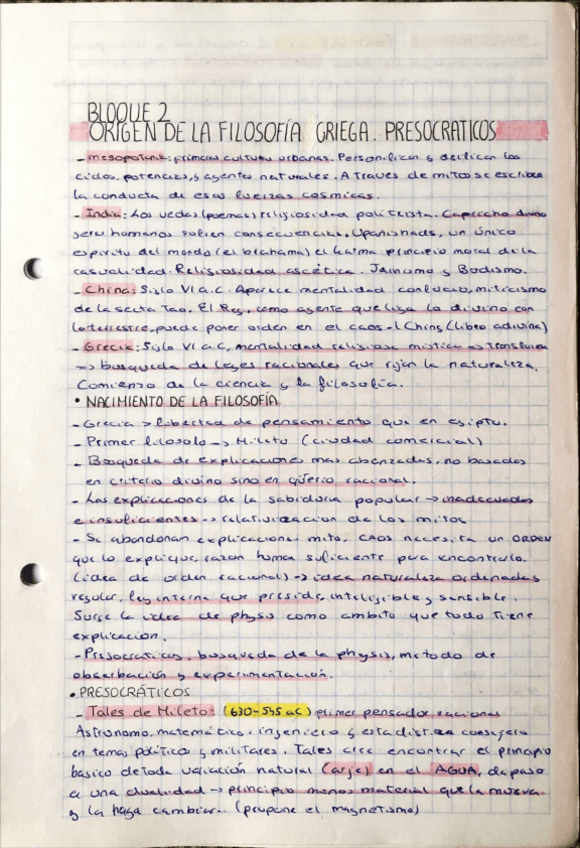 BLOQUE 2
ORIGEN DE LA FILOSOFÍA GRIEGA. PRESOCRATICOS
- Mesopotamia: primeras culturas urbanas. Personifican y deifican los
ciclos, potencias, y agentes naturales. A traves de mitos se escribe
la conducta de esas fuerzas cosmicas.
- India: Los vedas (poemas) religiosidad politeista. Capricho divino
seres humanos sufren consecuencias. Upanishads, un único
espiritu del mundo (el brahama) el karma principio moral de la
casualidad. Religiosidad ascética. Jainismo y Budismo.
- China: Siglo VI a.C. Aparece mentalidad confucio, miticismo
de la secta Tao. El Rey, como agente que liga lo divino con
lo terrestre, puede poner orden en el caos - I Ching (libro adivina)
- Grecia: Siglo VI a.C, mentalidad religiosa mistica -> 
-> busqueda de leyes racionales que rijan la naturaleza.
Comienzo de la ciencia y la filosofia.
• NACIMIENTO DE LA FILOSOFÍA
- Grecia > libertad de pensamiento que en egipto.
- Primer filosofo -> Mileto (ciudad comercial)
- Busqueda de explicaciones mas abanzadas, no basadas
en criterio divino sino en racional.
- Las explicaciones de la sabiduria popular -> inadecuadas
e insuficientes -> relativizacion de los mitos
- Se abandonan explicaciones mito, CAOS necesita un ORDEN
que lo explique, razon humana suficiente para encontrarlo.
(idea de orden racional) -> idea naturaleza ordenada,
regular, ley interna que preside, inteligible y sensible.
Surge la idea de physis como ambito que todo tiene
explicacion.
- Presocraticos, busqueda de la physis, metodo de
obserbación y experimentación.
• PRESOCRÁTICOS
- Tales de Mileto: (630-545 ac) primer pensador racional
Astronomo, matematico, ingeniero y estadista consejero
en temas políticos y militares. Tales cree encontrar el principio
basico de toda variación natural (arje) en el AGUA, da paso
a una dualidad -> principio menos material que la mueva
y la haga cambiar. (propone el magnetismo)